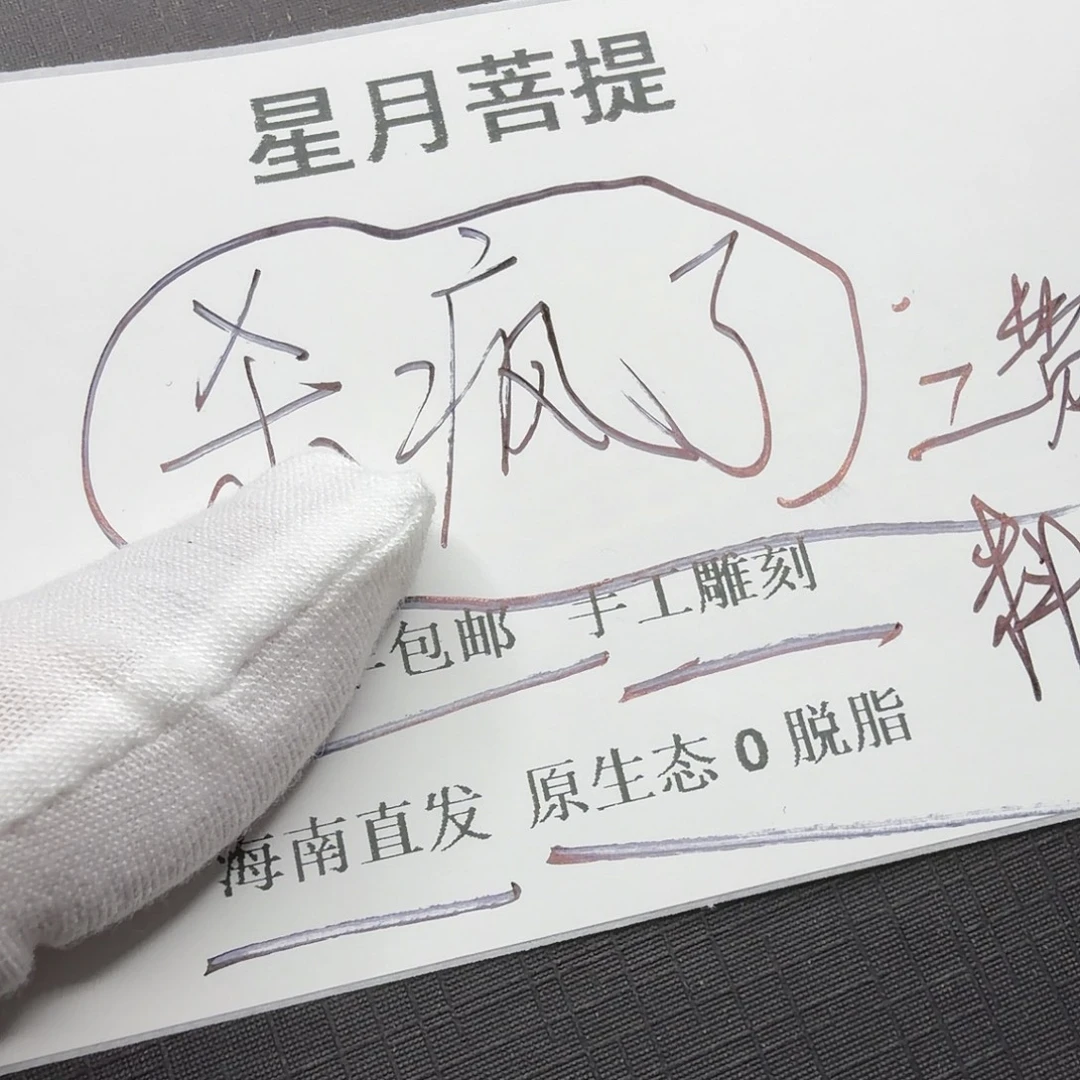 星月菩提
杀疯了
工费
料
包邮 手工雕刻
海南直发 原生态0脱脂